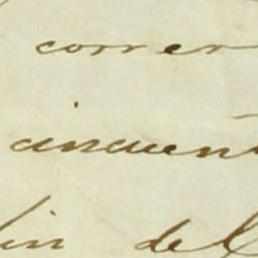 correr
cincuen
fin del